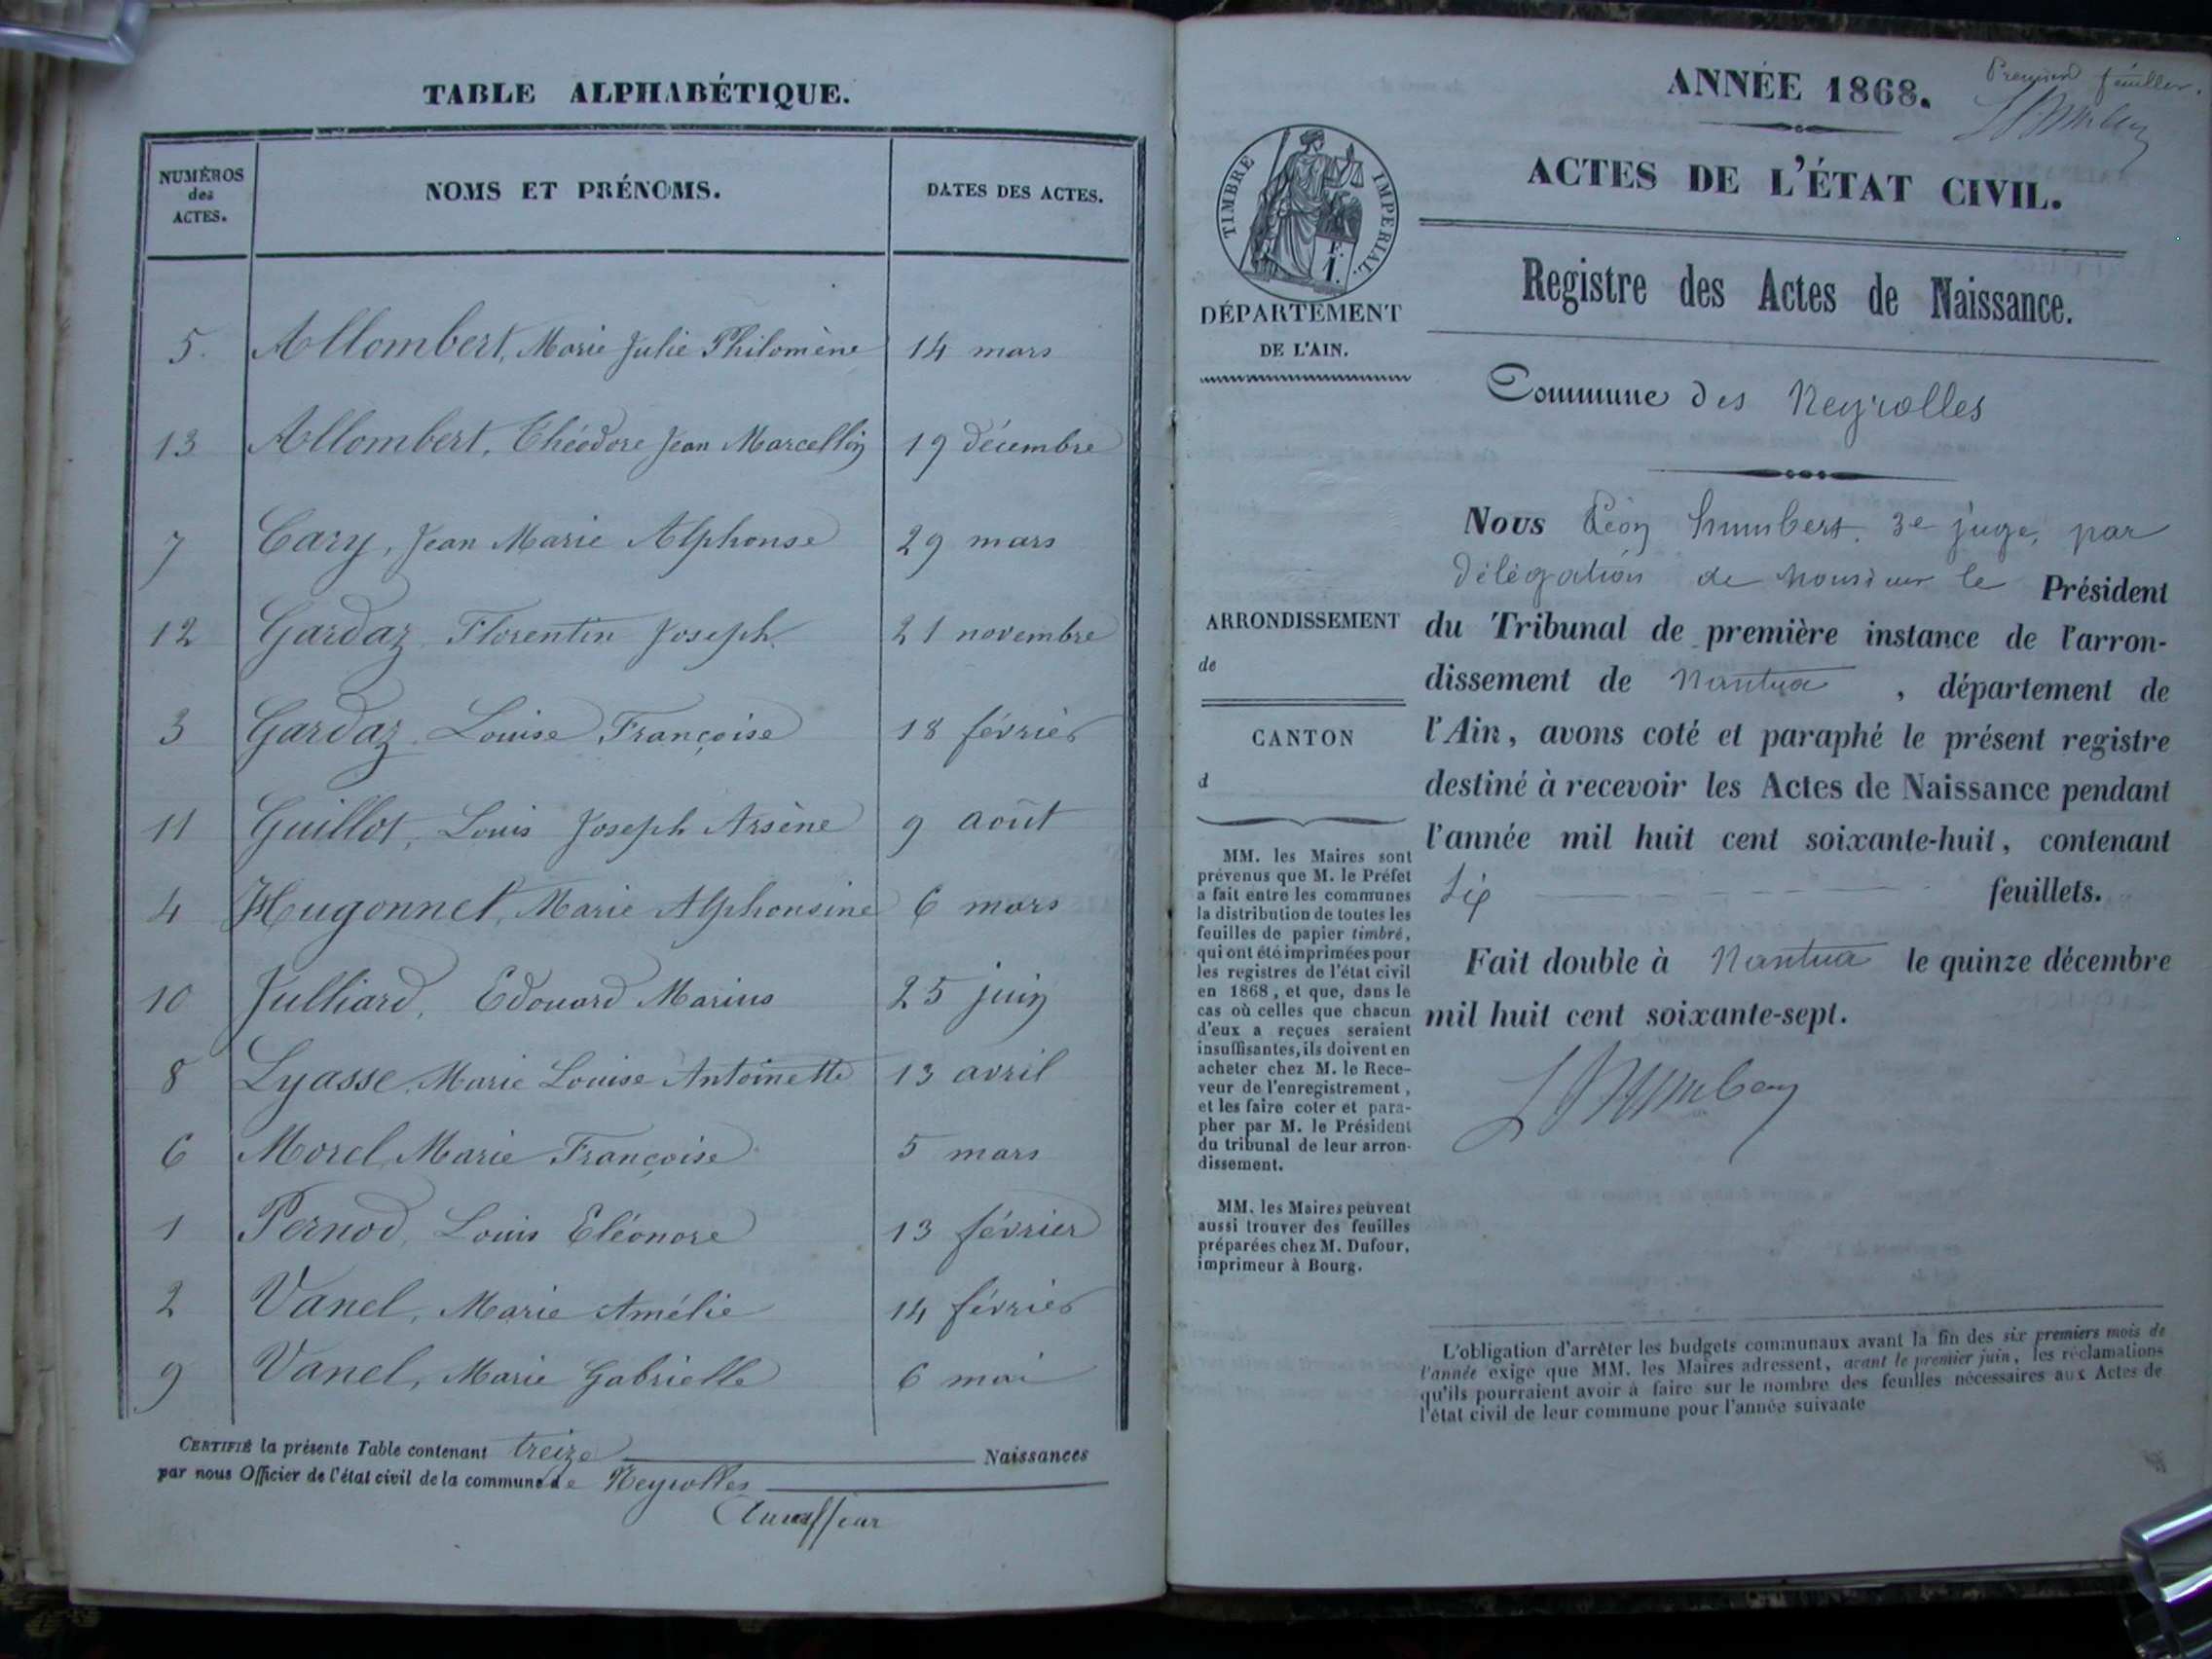 TABLE ALPHABÉTIQUE.
NUMÉROS des ACTES.
NOMS ET PRÉNOMS.
DATES DES ACTES.
5. Allombert, Marie Julie Philomène 14 mars
13 Allombert, Théodore Jean Marcellin 19 décembre
7 Cary, Jean Marie Alphonse 29 mars
12 Gardaz Florentin Joseph 21 novembre
3 Gardaz Louise Françoise 18 février
11 Guillot, Louis Joseph Arsène 9 août
4 Hugonnet, Marie Alphonsine 6 mars
10 Julliard, Edouard Marius 25 juin
8 Lyasse, Marie Louise Antoinette 13 avril
6 Morel Marie Françoise 5 mars
1 Pernod, Louis Eléonore 13 février
2 Vanel, Marie Amélie 14 février
9 Vanel, Marie Gabrielle 6 mai
CERTIFIÉ la présente Table contenant treize Naissances
par nous Officier de l'état civil de la commune de Neyrolles
Premier feuillet.
ANNÉE 1868.
ACTES DE L'ÉTAT CIVIL.
TIMBRE IMPÉRIAL.
1.
DÉPARTEMENT
DE L'AIN.
Registre des Actes de Naissance.
Commune des Neyrolles
Nous Léon humbert, 3e juge, par
délégation de monsieur le Président
du Tribunal de première instance de l'arron-
dissement de Nantua, département de
l'Ain, avons coté et paraphé le présent registre
destiné à recevoir les Actes de Naissance pendant
l'année mil huit cent soixante-huit, contenant
Six feuillets.
Fait double à Nantua le quinze décembre
mil huit cent soixante-sept.
LHumbert
ARRONDISSEMENT
de
CANTON
d
MM. les Maires sont
prévenus que M. le Préfet
a fait entre les communes
la distribution de toutes les
feuilles de papier timbré,
qui ont été imprimées pour
les registres de l'état civil
en 1868, et que, dans le
cas où celles que chacun
d'eux a reçues seraient
insuffisantes, ils doivent en
acheter chez M. le Rece-
veur de l'enregistrement,
et les faire coter et para-
pher par M. le Président
du tribunal de leur arron-
dissement.
MM. les Maires peuvent
aussi trouver des feuilles
préparées chez M. Dufour,
imprimeur à Bourg.
L'obligation d'arrêter les budgets communaux avant la fin des six premiers mois de
l'année exige que MM. les Maires adressent, avant le premier juin, les réclamations
qu'ils pourraient avoir à faire sur le nombre des feuilles nécessaires aux Actes de
l'état civil de leur commune pour l'année suivante